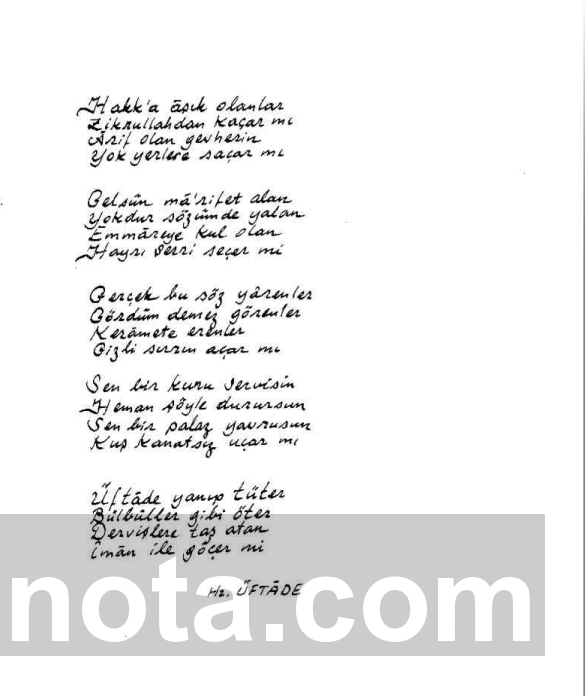 Hakk'a âşık olanlar
Zikrullahdan kaçar mı
Ârif olan gevherin
Yok yerlere saçar mı
Gelsün mâ'rifet alan
Yokdur sözümde yalan
Emmâreye kul olan
Hayrı şerri seçer mi
Gerçek bu söz yârenler
Gördüm demez görenler
Kerâmete erenler
Gizli sırrın açar mı
Sen bir kuru servisin
Heman şöyle durursun
Sen bir palaz yavrusun
Kuş kanatsız uçar mı
Üftâde yanıp tüter
Bülbüller gibi öter
Dervişlere taş atan
Îmân ile göçer mi
Hz. ÜFTÂDE
nota.com